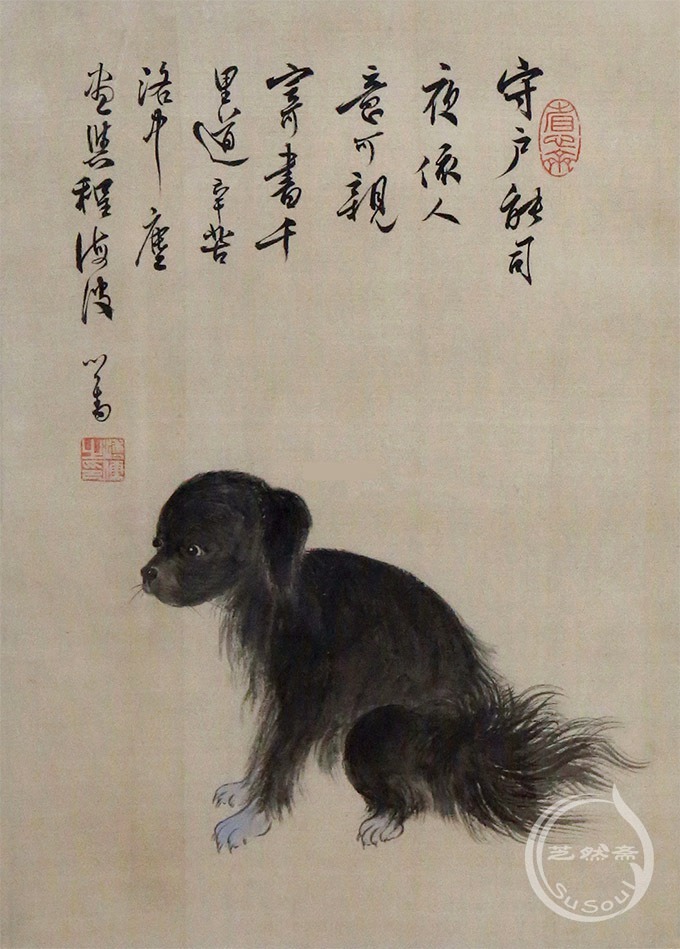 守户能司
夜依人
意可親
寄書千
里道辛苦
洛中塵
畫與程海波 心畬
芝然斋
SuSoul